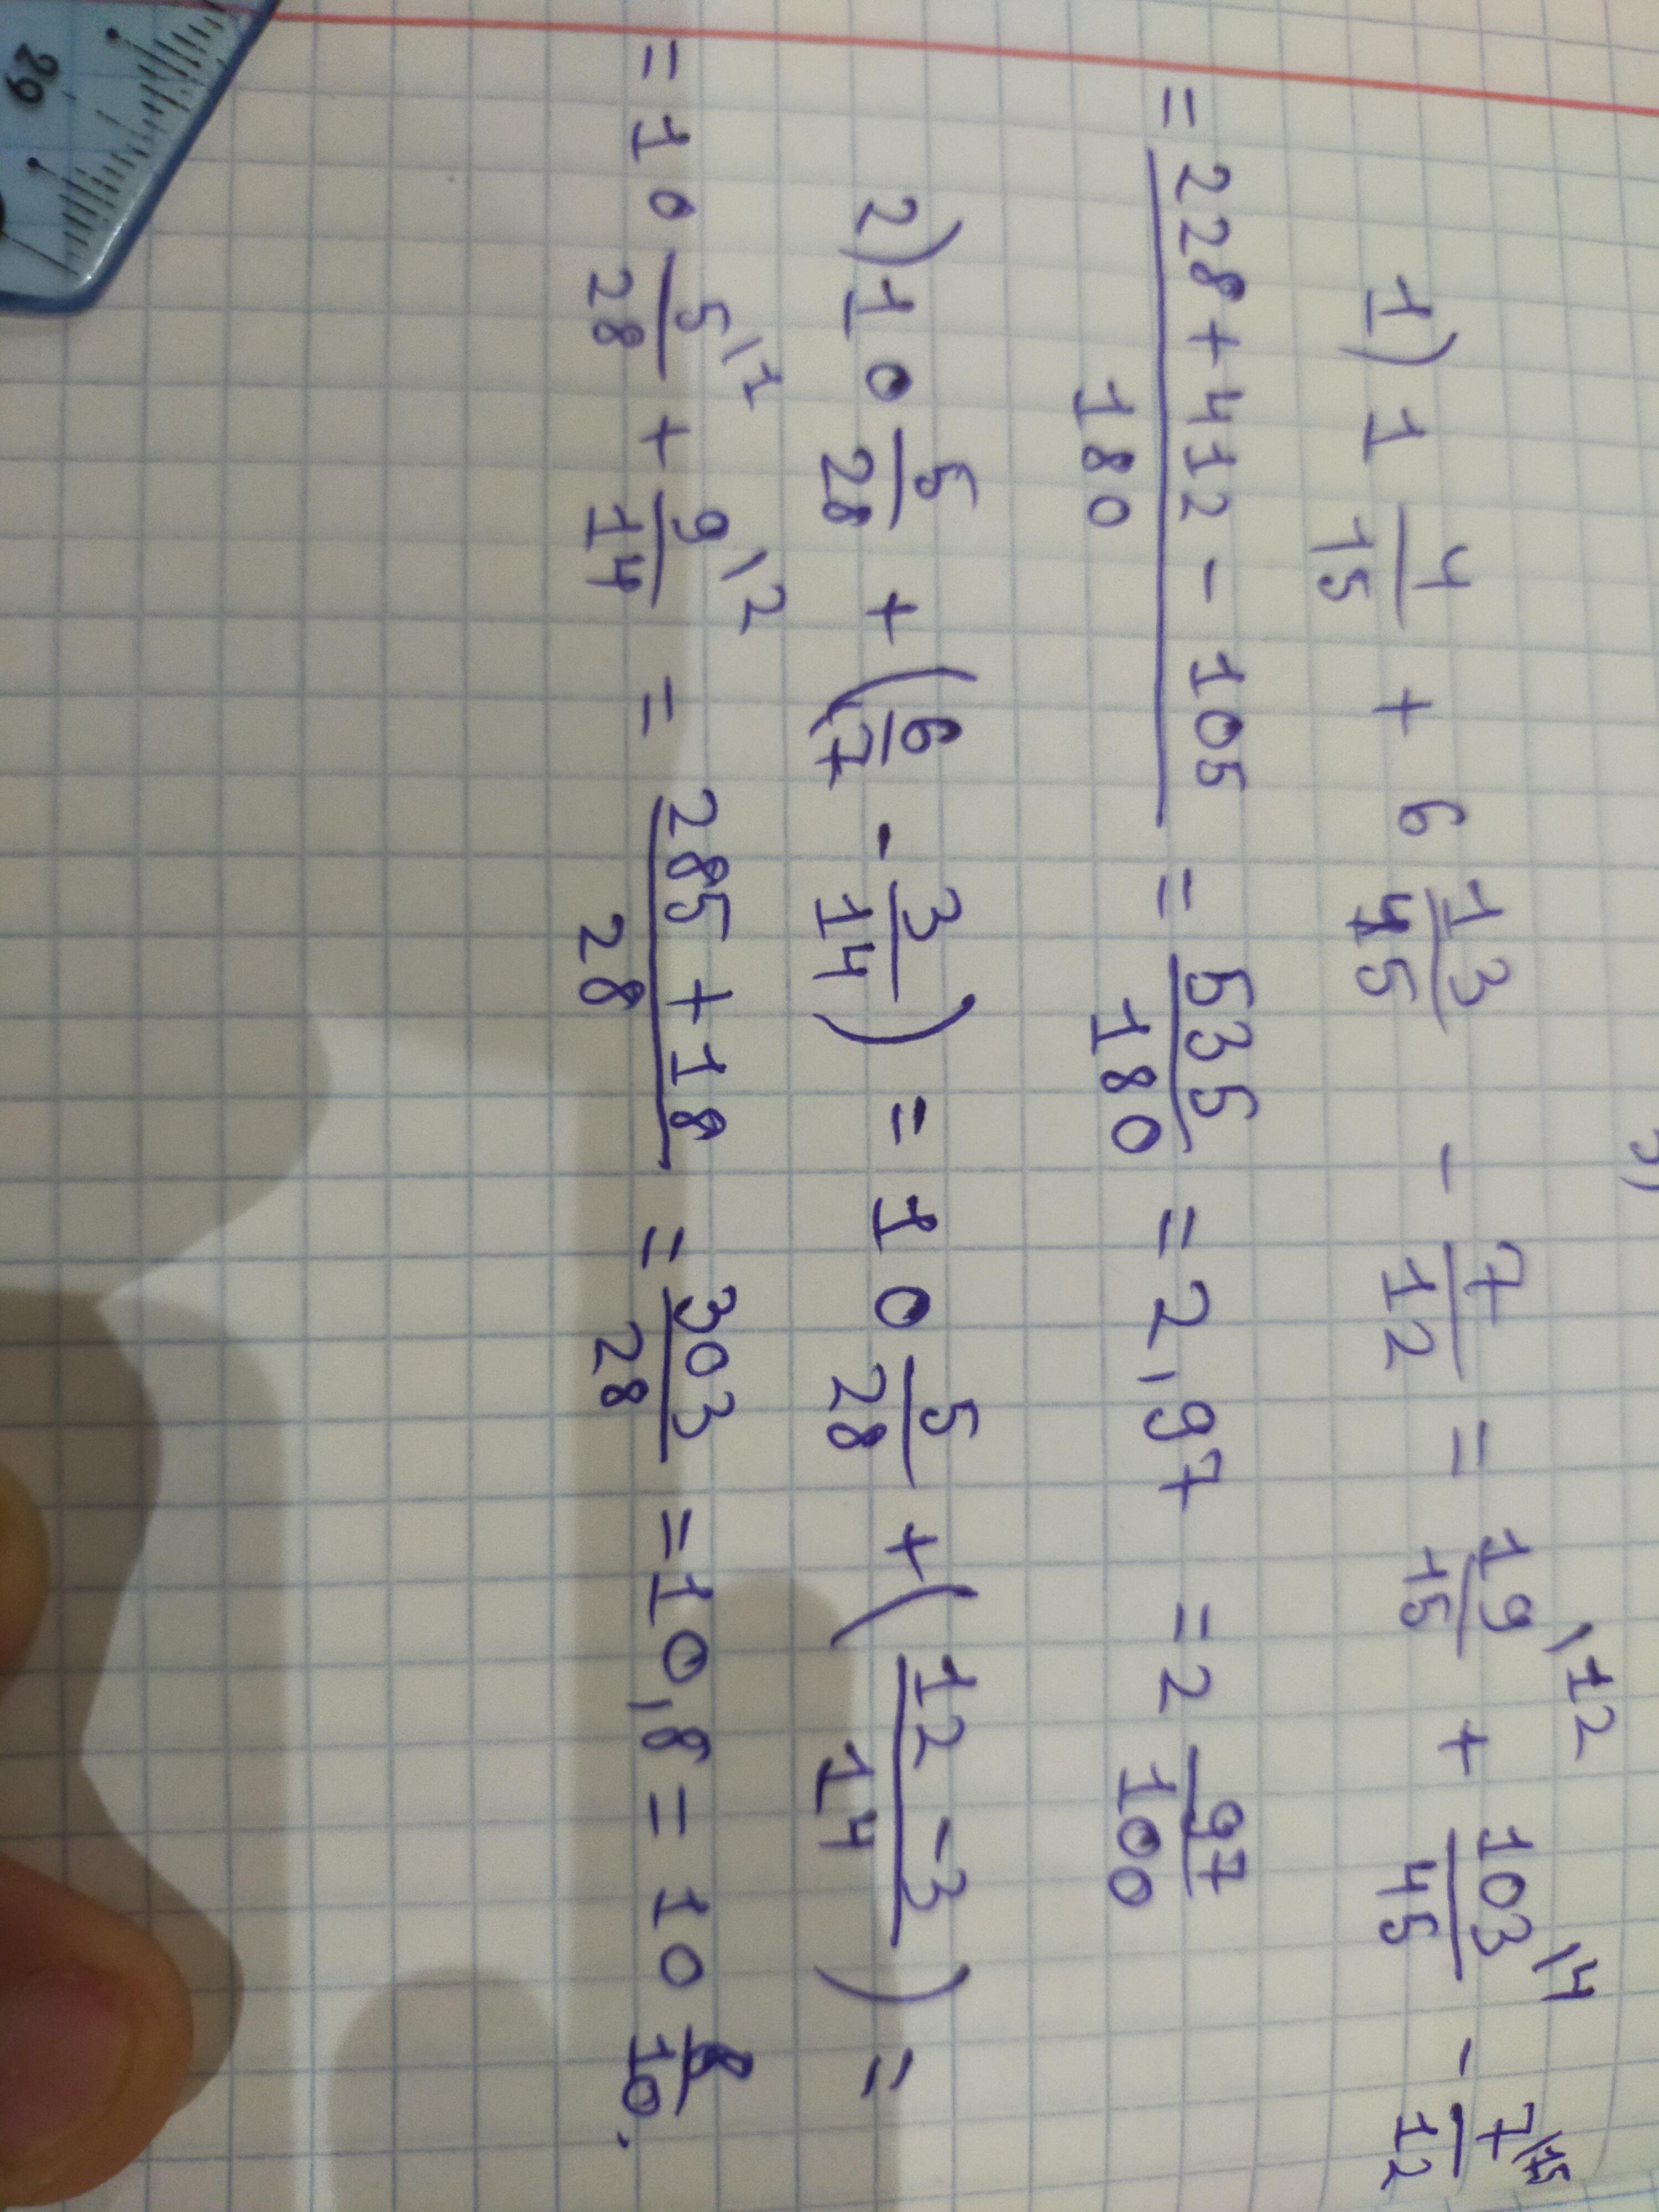 1) 1 4/15 + 6 13/45 - 7/12 = 19/15 \12 + 103/45 \4 - 7/12 \15
= (228 + 412 - 105)/180 = 535/180 = 2,97 = 2 97/100
2) 10 5/28 + (6/7 - 3/14) = 10 5/28 + (12 - 3)/14) =
= 10 5/28 \1 + 9/14 \2 = (285 + 18)/28 = 303/28 = 10,8 = 10 8/10.
29